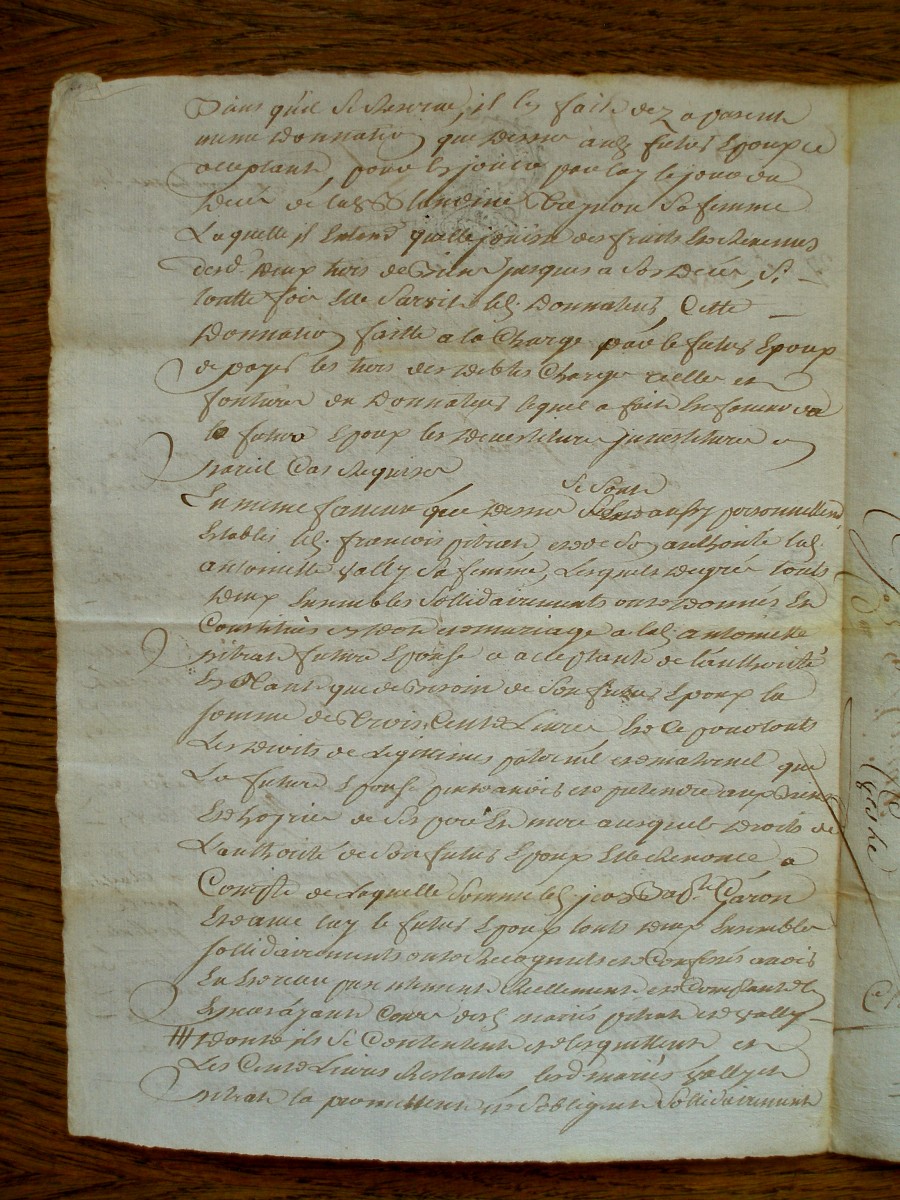 il les fait dez a parent
meme donnation que dessus audt futur Epoux ce
acceptant, pour en jouir par luy le jour du
deces de lad Claudine sa femme
Laquelle il entend quelle jouisse des fruits Et Revenus
desd deux tiers de jusques a son deces, si
toutte fois Elle survit led donnateur, Cette
donnation faitte a la Charge par le futur Epoux
de payer les tiers des debtes Charges reelles et
du donnateur lequel a fait En faveur du
futur Epoux les devestiture investiture
pareil Cas Requises
En meme faveur que dessus se sont aussy personnellemt
Establis led francois pitrat et de son authorité lad
antoinette Vally sa femme, Lesquels de gré touts
deux Ensembles sollidairements ont donnés Et
Constitués en dot et mariage a lad antoinette
pitrat future Epouse acceptante de l'authorité
En tant que de besoin de son futur Epoux la
somme de trois Cents Livres Et ce pour touts
Les droits de Legitimes paternel et maternel que
La future Epouse pouvoir et pretendre aux biens
Et hoirie de ses pere Et mere ausquels droits de
L'authorité de son futur Epoux Elle Renonce a
Compte de Laquelle somme led jean Bapte Garon
Et avec luy le futur Epoux touts deux Ensembles
sollidairements ont Recognus et Confessés avoir
Eu Et Receu reellement et Comptant
Cours desd mariés pitrat et Vally
dont ils se Contentent et les quittent et
Les Cents Livres Restantes lesd mariés Vally et
pitrat la promettent et s'obligent sollidairement